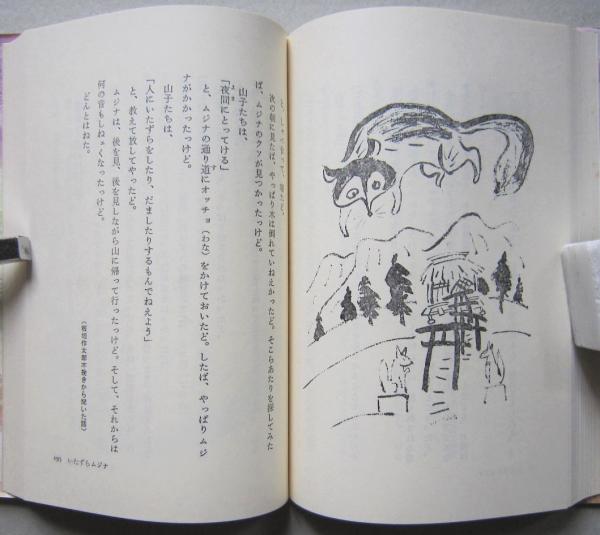 と、しゃべって、寝たど。
次の朝に見たば、やっぱり木は倒れていねえかったど。そこらあたりを探してみた
ば、ムジナのクソが見つかったけど。
山子たちは、
「夜間にとってける」
と、ムジナの通り道にオッチョ（わな）をかけておいたど。したば、やっぱりムジ
ナがかかったっけど。
山子たちは、
「人にいたずらをしたり、だましたりするもんでねえよう」
と、教えて放してやったど。
ムジナは、後を見、後を見しながら山に帰って行ったっけど。そして、それからは
何の音もしねぇくなったっけど。
どんとはねた。
作太郎木挽きから聞いた話）
いたずらムジナ